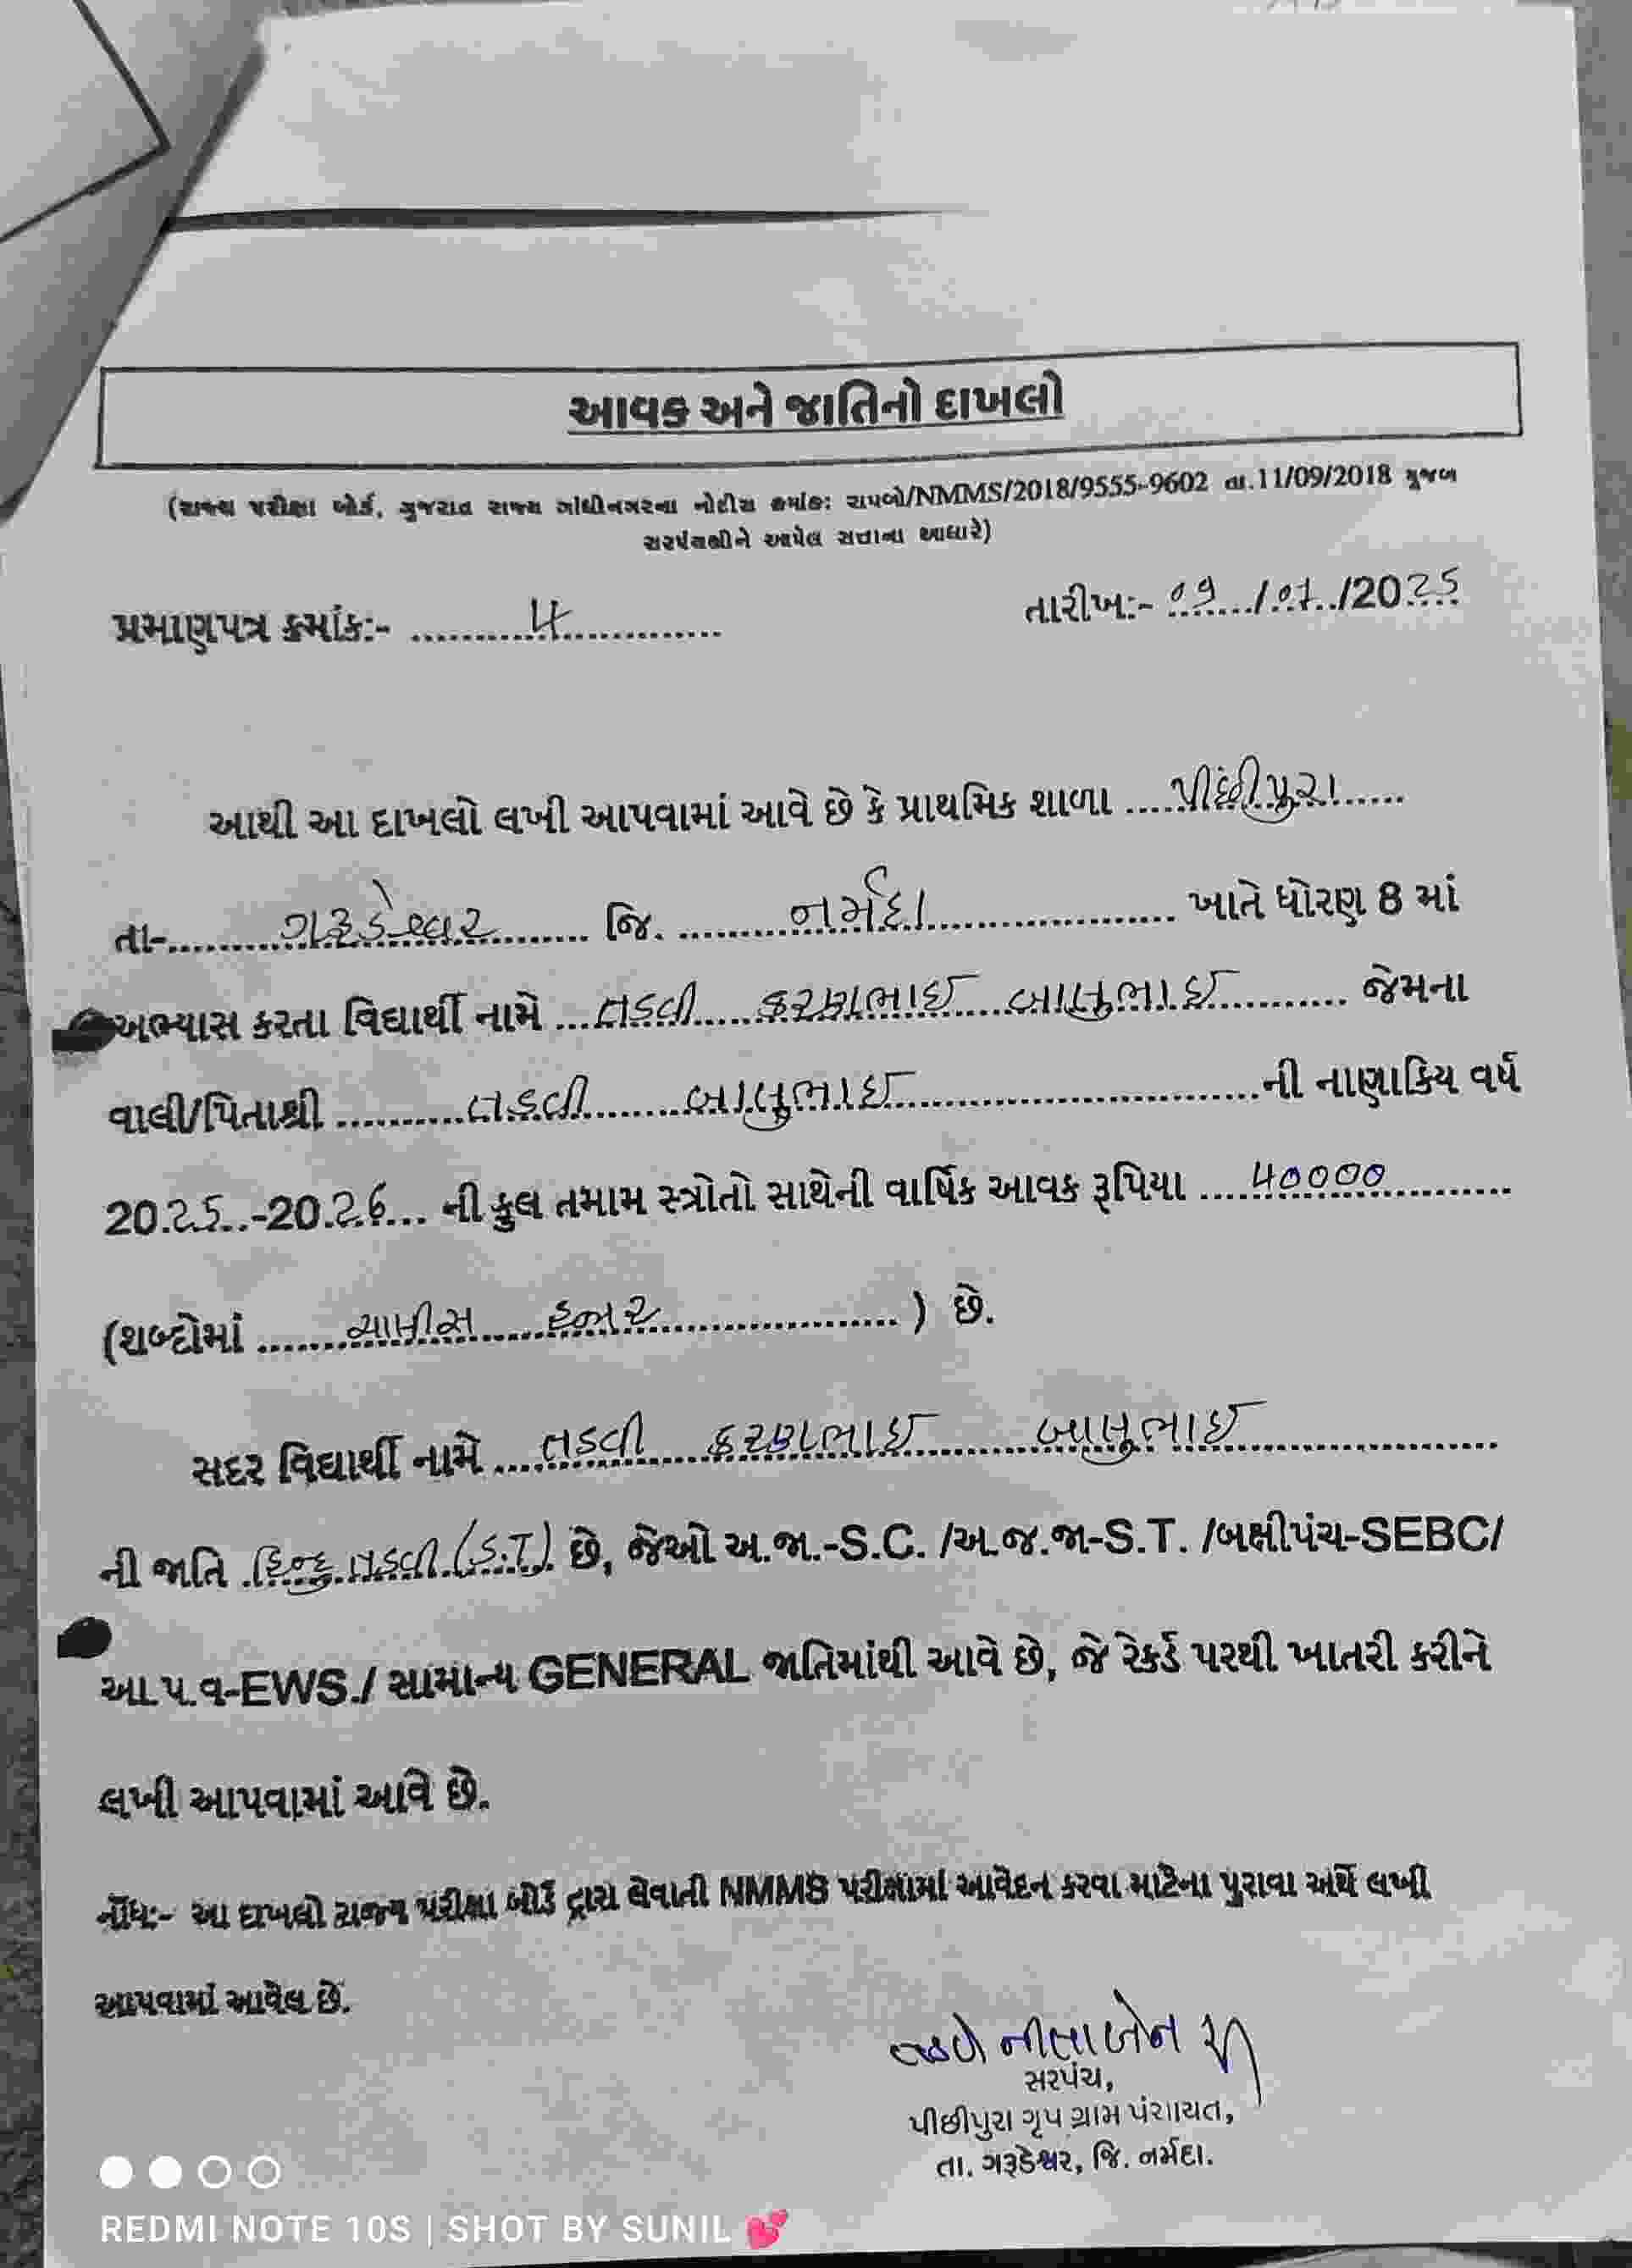 આવક અને જાતિનો દાખલો
(રાજ્ય પરીક્ષા બોર્ડ, ગુજરાત રાજ્ય ગાંધીનગરના નોટીસ ક્રમાંક: રાપબો/NMMS/2018/9555-9602 તા.11/09/2018 મુજબ
સરપંચશ્રીને આપેલ સત્તાના આધારે)
પ્રમાણપત્ર ક્રમાંક:- ..........૫............ તારીખ:- ૦૧/૦૧/2025
આથી આ દાખલો લખી આપવામાં આવે છે કે પ્રાથમિક શાળા ....પીંછીપુરા......
તા-...........ગરૂડેશ્વર......... જિ. .........નર્મદા................... ખાતે ધોરણ 8 માં
અભ્યાસ કરતા વિદ્યાર્થી નામે ...તડવી.....કરણભાઈ...બાલુભાઈ........... જેમના
વાલી/પિતાશ્રી ..........તડવી........બાલુભાઈ..............................ની નાણાકિય વર્ષ
20.25..-20.26... ની કુલ તમામ સ્ત્રોતો સાથેની વાર્ષિક આવક રૂપિયા ....૪૦૦૦૦..........
(શબ્દોમાં .......ચાલીસ.....હજાર.....................) છે.
સદર વિદ્યાર્થી નામે ....તડવી...કરણભાઈ..........બાલુભાઈ....................
ની જાતિ .હિન્દુ.તડવી.(S.T). છે, જેઓ અ.જા.-S.C. /અ.જ.જા-S.T. /બક્ષીપંચ-SEBC/
આ.પ.વ-EWS./ સામાન્ય GENERAL જાતિમાંથી આવે છે, જે રેકર્ડ પરથી ખાતરી કરીને
લખી આપવામાં આવે છે.
નોંધ:- આ દાખલો રાજ્ય પરીક્ષા બોર્ડ દ્વારા લેવાતી NMMS પરીક્ષામાં આવેદન કરવા માટેના પુરાવા અર્થે લખી
આપવામાં આવેલ છે.
નીલાબેન
સરપંચ,
પીછીપુરા ગૃપ ગ્રામ પંચાયત,
તા. ગરૂડેશ્વર, જિ. નર્મદા.
REDMI NOTE 10S | SHOT BY SUNIL 💕